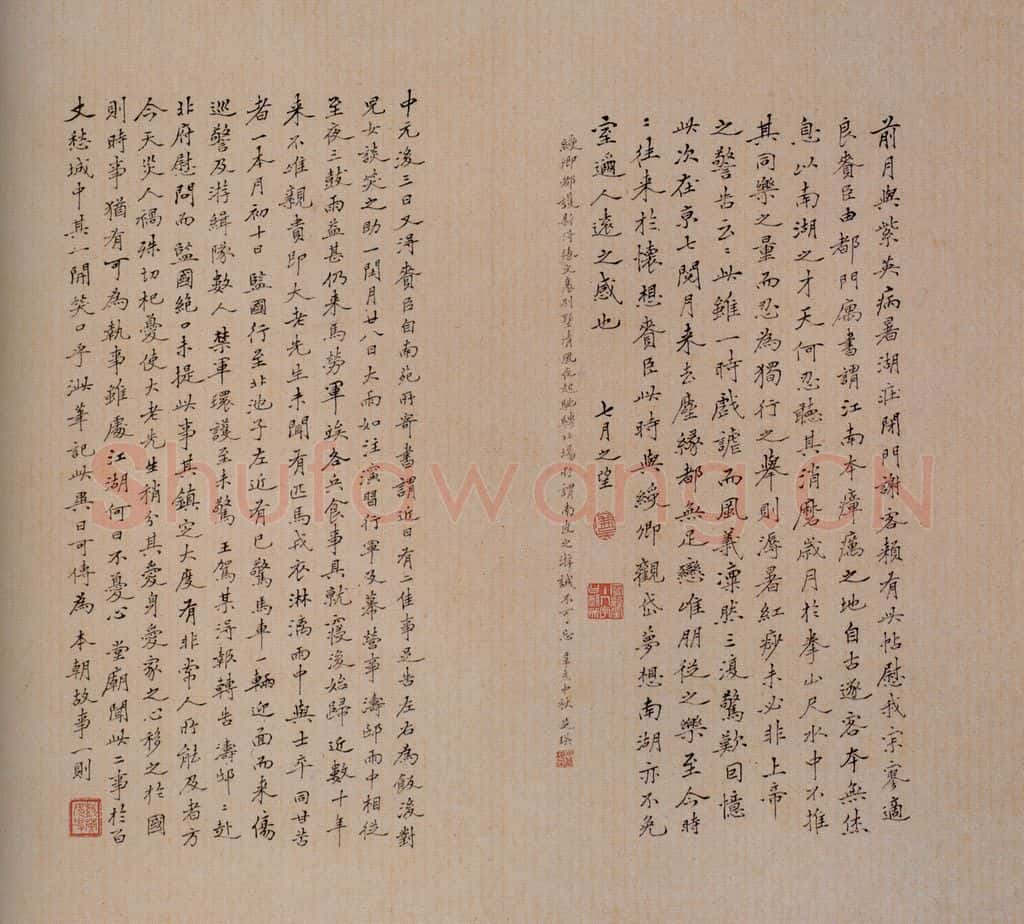 前月與紫英病暑湖莊閉門謝客頼有此帖慰我宗寥適
良賚臣由都門寓書謂江南本瘴癘之地自古逐客本無休
息以南湖之才天何忍聽其消磨歲月於拳山尺水中不推
其同樂之量而忍為獨行之舉則溽暑紅痧未必非上帝
之警告云〻此雖一時戲謔而風義凜然三復驚歎回憶
此次在京七閱月来去塵緣都無足戀唯朋從之樂至今時
〻往来於懷想賚臣此時與綬卿觀岱夢想南湖亦不免
室邇人遠之感也 七月之望
綬卿都護新得倦文慕別墅清風夜起馳騁北場所謂南皮之游誠不可忘 辛亥中秋
中元後三日又得賚臣自南苑所寄書謂近日有二佳事足告左右為飯後對
兒女談笑之助一閏月廿八日大雨如注演習行軍及幕營事濤邸雨中相從
至夜三鼓雨益甚仍来馬勞軍竢各兵食事具就寢後始歸近數十年
来不唯親貴即大老先生未聞有匹馬戎衣淋漓雨中與士卒同甘苦
者一本月初十日監國行至北池子左近有已驚馬車一輛迎面而来傷
巡警及游緝隊數人禁軍環護至未驚王駕某得報轉告濤邸〻赴
北府慰問而監國絕口未提此事其鎮定大度有非常人所能及者方
今天災人禍殊切杞憂使大老先生稍分其愛身愛家之心移之於國
則時事猶有可為執事雖處江湖何日不憂心堂廟聞此二事於百
丈愁城中其一開笑口乎泚筆記此異日可傳為本朝故事一則
Shufawang.CN